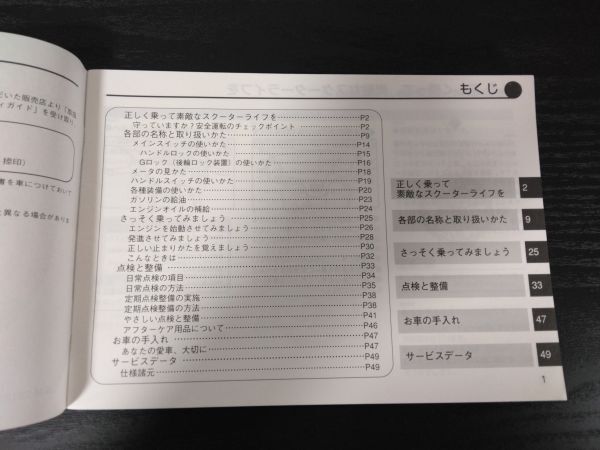 だいた販売店より「取扱
ィガイド」を受け取り、
捺印)
書を車につけておいて
と異なる場合がありま
もくじ
正しく乗って素敵なスクーターライフを P2
守っていますか?安全運転のチェックポイント P2
各部の名称と取り扱いかた P9
メインスイッチの使いかた P14
ハンドルロックの使いかた P15
Gロック(後輪ロック装置)の使いかた P16
メータの見かた P18
ハンドルスイッチの使いかた P19
各種装備の使いかた P20
ガソリンの給油 P23
エンジンオイルの補給 P24
さっそく乗ってみましょう P25
エンジンを始動させてみましょう P26
発進させてみましょう P28
正しい止まりかたを覚えましょう P30
こんなときは P32
点検と整備 P33
日常点検の項目 P34
日常点検の方法 P35
定期点検整備の実施 P38
定期点検整備の方法 P38
やさしい点検と整備 P41
アフターケア用品について P46
お車の手入れ P47
あなたの愛車、大切に P47
サービスデータ P49
仕様諸元 P49
正しく乗って
素敵なスクーターライフを 2
各部の名称と取り扱いかた 9
さっそく乗ってみましょう 25
点検と整備 33
お車の手入れ 47
サービスデータ 49
1